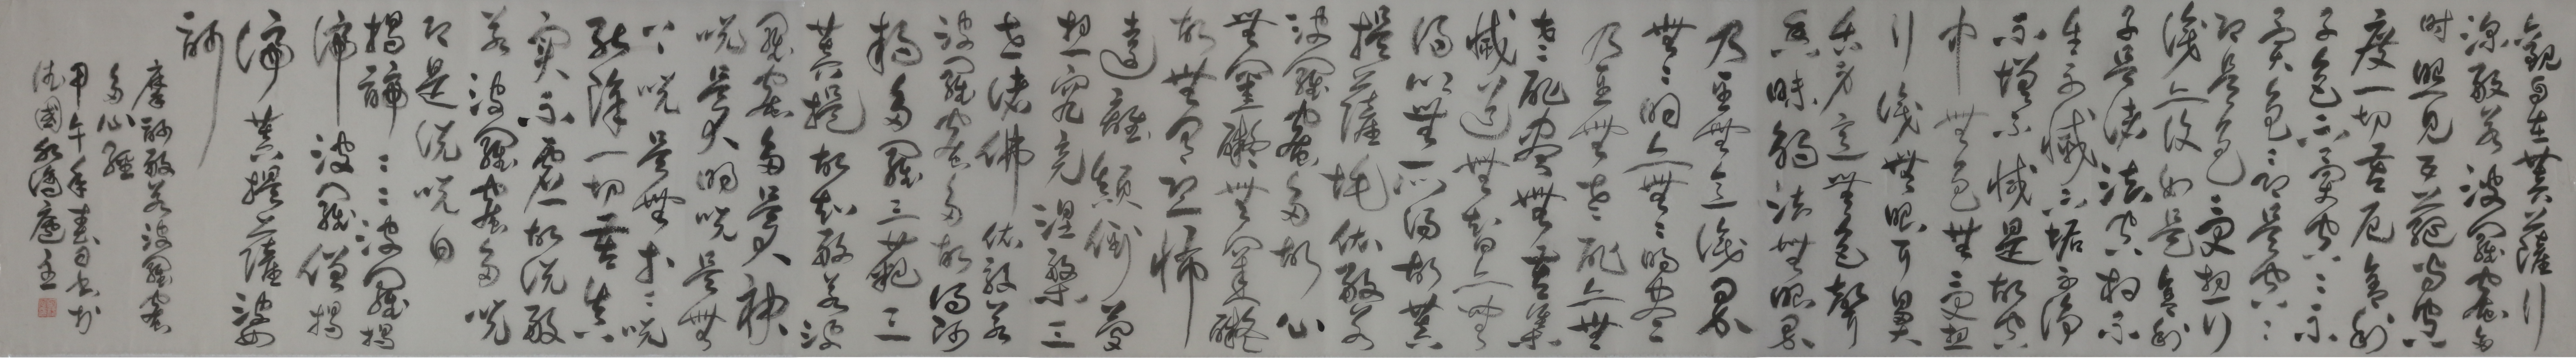 觀自在菩薩行
深般若波羅蜜多
時照見五蘊皆空
度一切苦厄舍利
子色不異空〻不
異色〻即是空〻
即是色〻受想行
識亦復如是舍利
子是諸法空相不
生不滅不垢不淨
不增不減是故空
中無色無受想
行識無眼耳鼻
舌身意無色聲
香味觸法無眼界
乃至無意識界
無〻明亦無〻明盡
乃至無老死亦無
老死盡無苦集
滅道無智亦無
得以無所得故菩
提薩埵依般若
波羅蜜多故心
無罣礙〻無罣礙
故無有恐怖
遠離顛倒夢
想究竟涅槃三
世諸佛依般若
波羅蜜多故得阿
耨多羅三藐三
菩提故知般若波
羅蜜多是大神
咒是大明咒是無
上咒是無等〻咒
能除一切苦真
實不虛故說般
若波羅蜜多咒
即是說咒曰
揭諦〻〻波羅揭
諦波羅僧揭
諦菩提薩婆
訶
摩訶般若波羅蜜
多心經
甲午年春月書於
法國廬主